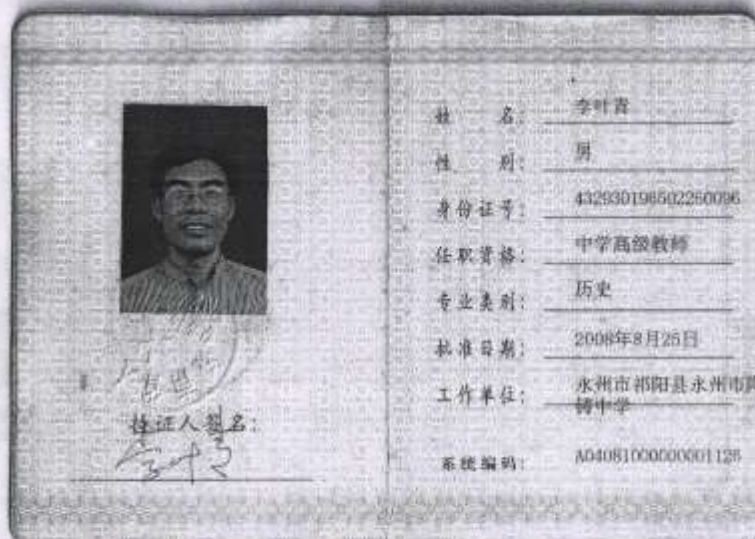 持证人签名：
姓 名： 李叶青
性 别： 男
身份证号： 432930196502260096
任职资格： 中学高级教师
专业类别： 历史
批准日期： 2008年8月25日
工作单位： 永州市祁阳县永州市陶
铸中学
系统编码： A04081000000001126